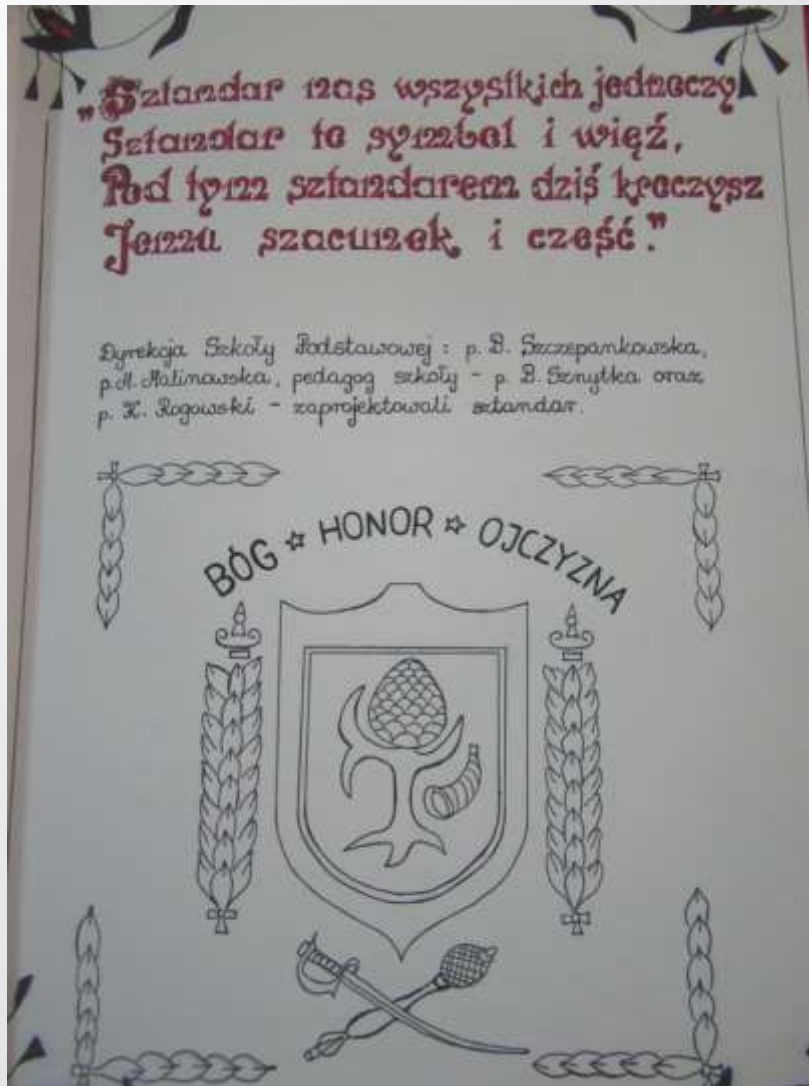 „Sztandar nas wszystkich jednoczy
Sztandar to symbol i więź,
Pod tym sztandarem dziś kroczysz
Jemu szacunek i cześć."
Dyrekcja Szkoły Podstawowej : p. B. Szczepankowska,
p. M. Malinowska, pedagog szkoły - p. B. Sznytka oraz
p. K. Rogowski - zaprojektowali sztandar.
BÓG ☆ HONOR ☆ OJCZYZNA